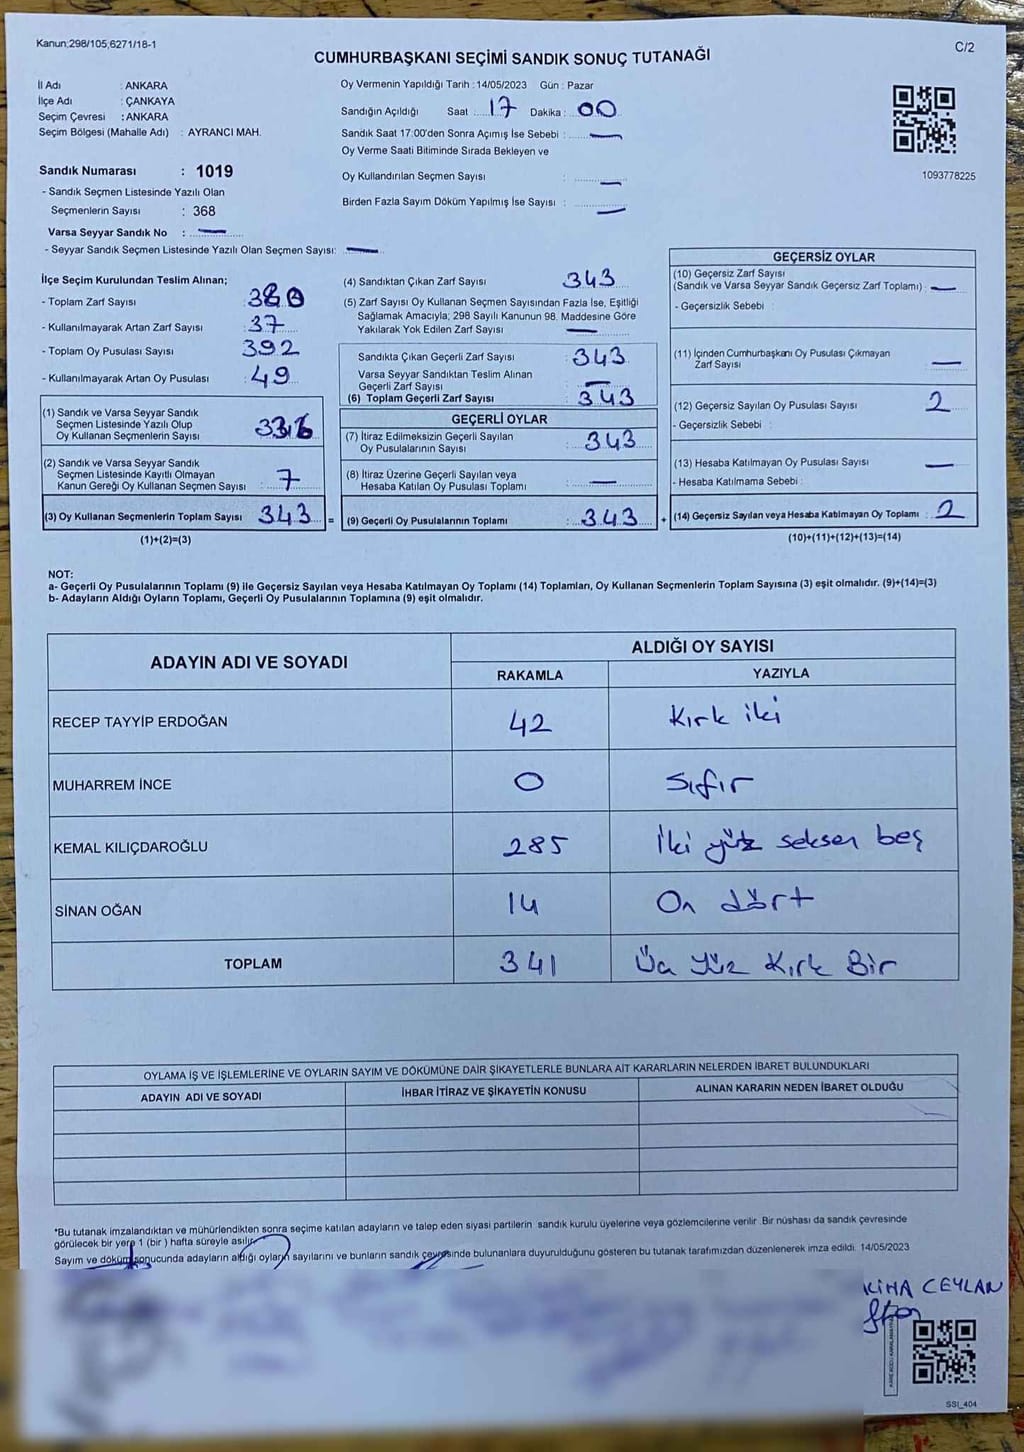 Kanun;298/105,6271/18-1
C/2
CUMHURBAŞKANI SEÇİMİ SANDIK SONUÇ TUTANAĞI
İl Adı : ANKARA
İlçe Adı : ÇANKAYA
Seçim Çevresi : ANKARA
Seçim Bölgesi (Mahalle Adı) : AYRANCI MAH.
Oy Vermenin Yapıldığı Tarih : 14/05/2023 Gün : Pazar
Sandığın Açıldığı Saat : 17 Dakika : 00
Sandık Saat 17:00'den Sonra Açımış İse Sebebi : —
Oy Verme Saati Bitiminde Sırada Bekleyen ve
Oy Kullandırılan Seçmen Sayısı : —
Birden Fazla Sayım Döküm Yapılmış İse Sayısı : —
1093778225
Sandık Numarası : 1019
- Sandık Seçmen Listesinde Yazılı Olan
Seçmenlerin Sayısı : 368
Varsa Seyyar Sandık No : —
- Seyyar Sandık Seçmen Listesinde Yazılı Olan Seçmen Sayısı: —
İlçe Seçim Kurulundan Teslim Alınan;
- Toplam Zarf Sayısı 380
- Kullanılmayarak Artan Zarf Sayısı : 37
- Toplam Oy Pusulası Sayısı : 392
- Kullanılmayarak Artan Oy Pusulası : 49
(1) Sandık ve Varsa Seyyar Sandık
Seçmen Listesinde Yazılı Olup
Oy Kullanan Seçmenlerin Sayısı : 336
(2) Sandık ve Varsa Seyyar Sandık
Seçmen Listesinde Kayıtlı Olmayan
Kanun Gereği Oy Kullanan Seçmen Sayısı : 7
(3) Oy Kullanan Seçmenlerin Toplam Sayısı : 343 =
(1)+(2)=(3)
(4) Sandıktan Çıkan Zarf Sayısı : 343
(5) Zarf Sayısı Oy Kullanan Seçmen Sayısından Fazla İse, Eşitliği
Sağlamak Amacıyla; 298 Sayılı Kanunun 98. Maddesine Göre
Yakılarak Yok Edilen Zarf Sayısı : —
Sandıkta Çıkan Geçerli Zarf Sayısı : 343
Varsa Seyyar Sandıktan Teslim Alınan
Geçerli Zarf Sayısı : —
(6) Toplam Geçerli Zarf Sayısı : 343
GEÇERLİ OYLAR
(7) İtiraz Edilmeksizin Geçerli Sayılan
Oy Pusulalarının Sayısı : 343
(8) İtiraz Üzerine Geçerli Sayılan veya
Hesaba Katılan Oy Pusulası Toplamı : —
(9) Geçerli Oy Pusulalarının Toplamı : 343 +
GEÇERSİZ OYLAR
(10) Geçersiz Zarf Sayısı
(Sandık ve Varsa Seyyar Sandık Geçersiz Zarf Toplamı) : —
- Geçersizlik Sebebi :
(11) İçinden Cumhurbaşkanı Oy Pusulası Çıkmayan
Zarf Sayısı : —
(12) Geçersiz Sayılan Oy Pusulası Sayısı : 2
- Geçersizlik Sebebi :
(13) Hesaba Katılmayan Oy Pusulası Sayısı : —
- Hesaba Katılmama Sebebi :
(14) Geçersiz Sayılan veya Hesaba Katılmayan Oy Toplamı : 2
(10)+(11)+(12)+(13)=(14)
NOT:
a- Geçerli Oy Pusulalarının Toplamı (9) ile Geçersiz Sayılan veya Hesaba Katılmayan Oy Toplamı (14) Toplamları, Oy Kullanan Seçmenlerin Toplam Sayısına (3) eşit olmalıdır. (9)+(14)=(3)
b- Adayların Aldığı Oyların Toplamı, Geçerli Oy Pusulalarının Toplamına (9) eşit olmalıdır.
ADAYIN ADI VE SOYADI
ALDIĞI OY SAYISI
RAKAMLA YAZIYLA
RECEP TAYYİP ERDOĞAN 42 Kırk iki
MUHARREM İNCE 0 Sıfır
KEMAL KILIÇDAROĞLU 285 İki yüz seksen beş
SİNAN OĞAN 14 On dört
TOPLAM 341 Üç Yüz Kırk Bir
OYLAMA İŞ VE İŞLEMLERİNE VE OYLARIN SAYIM VE DÖKÜMÜNE DAİR ŞİKAYETLERLE BUNLARA AİT KARARLARIN NELERDEN İBARET BULUNDUKLARI
ADAYIN ADI VE SOYADI İHBAR İTİRAZ VE ŞİKAYETİN KONUSU ALINAN KARARIN NEDEN İBARET OLDUĞU
*Bu tutanak imzalandıktan ve mühürlendikten sonra seçime katılan adayların ve talep eden siyasi partilerin sandık kurulu üyelerine veya gözlemcilerine verilir. Bir nüshası da sandık çevresinde
görülecek bir yere 1 (bir ) hafta süreyle asılır.
Sayım ve döküm sonucunda adayların aldığı oyların sayılarını ve bunların sandık çevresinde bulunanlara duyurulduğunu gösteren bu tutanak tarafımızdan düzenlenerek imza edildi. 14/05/2023
CEYLAN
SSI_404